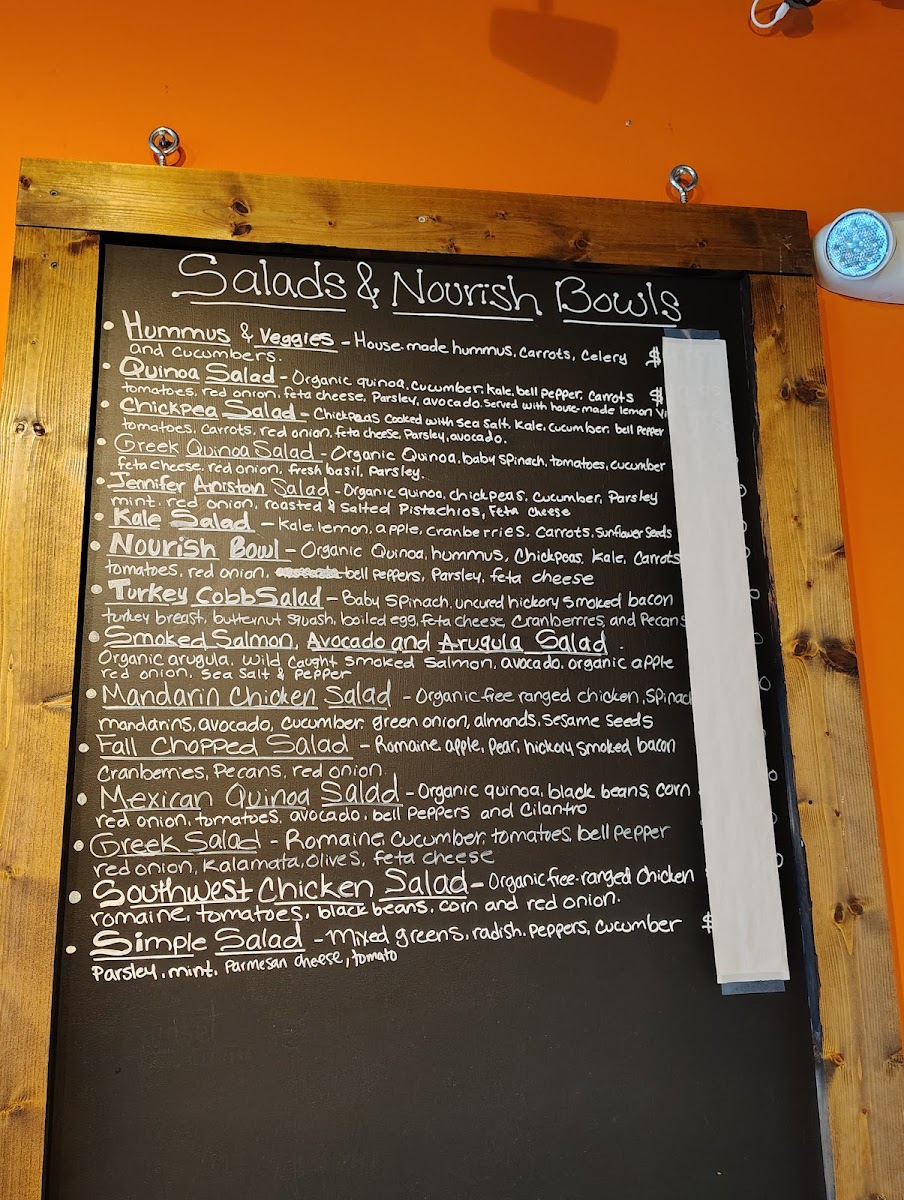 Salads & Nourish Bowls
• Hummus & Veggies - House made hummus, carrots, Celery $
and cucumbers.
• Quinoa Salad - Organic quinoa, cucumber, kale, bell pepper, carrots $
tomatoes, red onion, feta cheese, Parsley, avocado. Served with house-made lemon
• Chickpea Salad - Chickpeas Cooked with sea salt, kale, cucumber, bell pepper
tomatoes, carrots, red onion, feta cheese, Parsley, avocado.
• Greek Quinoa Salad - Organic Quinoa, baby spinach, tomatoes, cucumber
feta cheese, red onion, fresh basil, Parsley.
• Jennifer Aniston Salad - Organic quinoa, chickpeas, cucumber, Parsley
mint, red onion, roasted & salted Pistachios, Feta cheese
• Kale Salad - Kale, lemon, apple, cranberries, carrots, sunflower seeds
• Nourish Bowl - Organic Quinoa, hummus, Chickpeas, Kale, Carrots
tomatoes, red onion, bell peppers, Parsley, feta cheese
• Turkey Cobb Salad - Baby Spinach, uncured hickory smoked bacon
turkey breast, butternut squash, boiled egg, feta cheese, Cranberries, and Pecans
• Smoked Salmon, Avocado and Arugula Salad .
Organic arugula, wild caught smoked salmon, avocado, organic apple
red onion, sea salt & pepper
• Mandarin Chicken Salad - Organic free ranged chicken, Spinac
mandarins, avocado, cucumber, green onion, almonds, sesame seeds
• Fall Chopped Salad - Romaine, apple, pear, hickory smoked bacon
Cranberries, Pecans, red onion
• Mexican Quinoa Salad - Organic quinoa, black beans, corn
red onion, tomatoes, avocado, bell peppers and Cilantro
• Greek Salad - Romaine, cucumber, tomatoes, bell pepper
red onion, Kalamata, Olives, feta cheese
• Southwest Chicken Salad - Organic free-ranged Chicken
romaine, tomatoes, black beans, corn and red onion.
• Simple Salad - Mixed greens, radish, peppers, cucumber $
Parsley, mint, Parmesan cheese, tomato